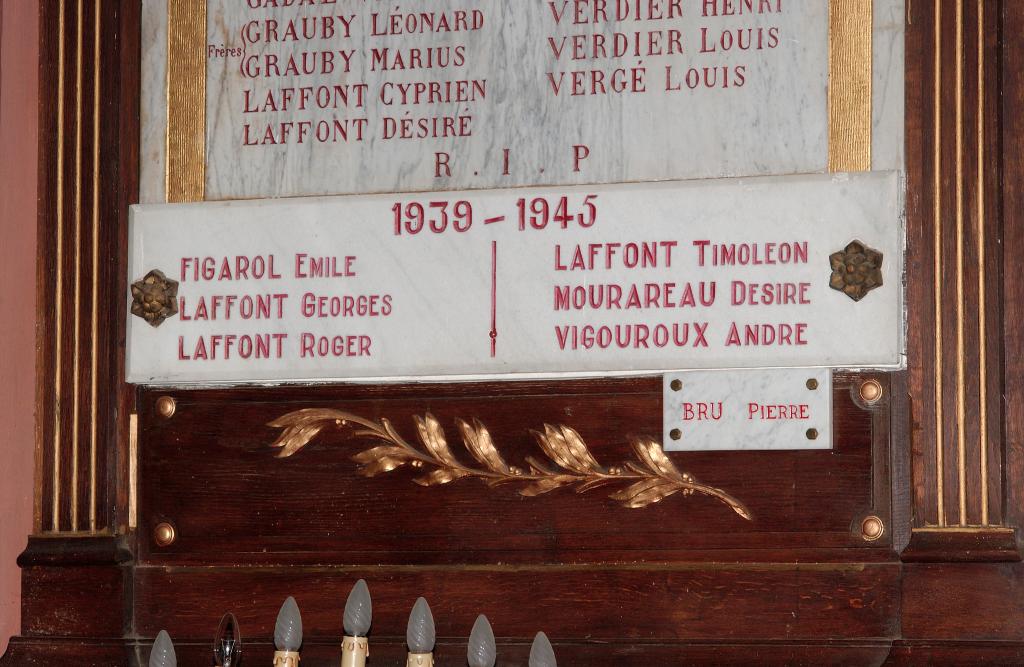 GRAUBY LÉONARD
Frères
GRAUBY MARIUS
LAFFONT CYPRIEN
LAFFONT DÉSIRÉ
VERDIER HENRI
VERDIER LOUIS
VERGÉ LOUIS
R . I . P
1939 - 1945
FIGAROL EMILE
LAFFONT GEORGES
LAFFONT ROGER
LAFFONT TIMOLEON
MOURAREAU DESIRE
VIGOUROUX ANDRE
BRU PIERRE